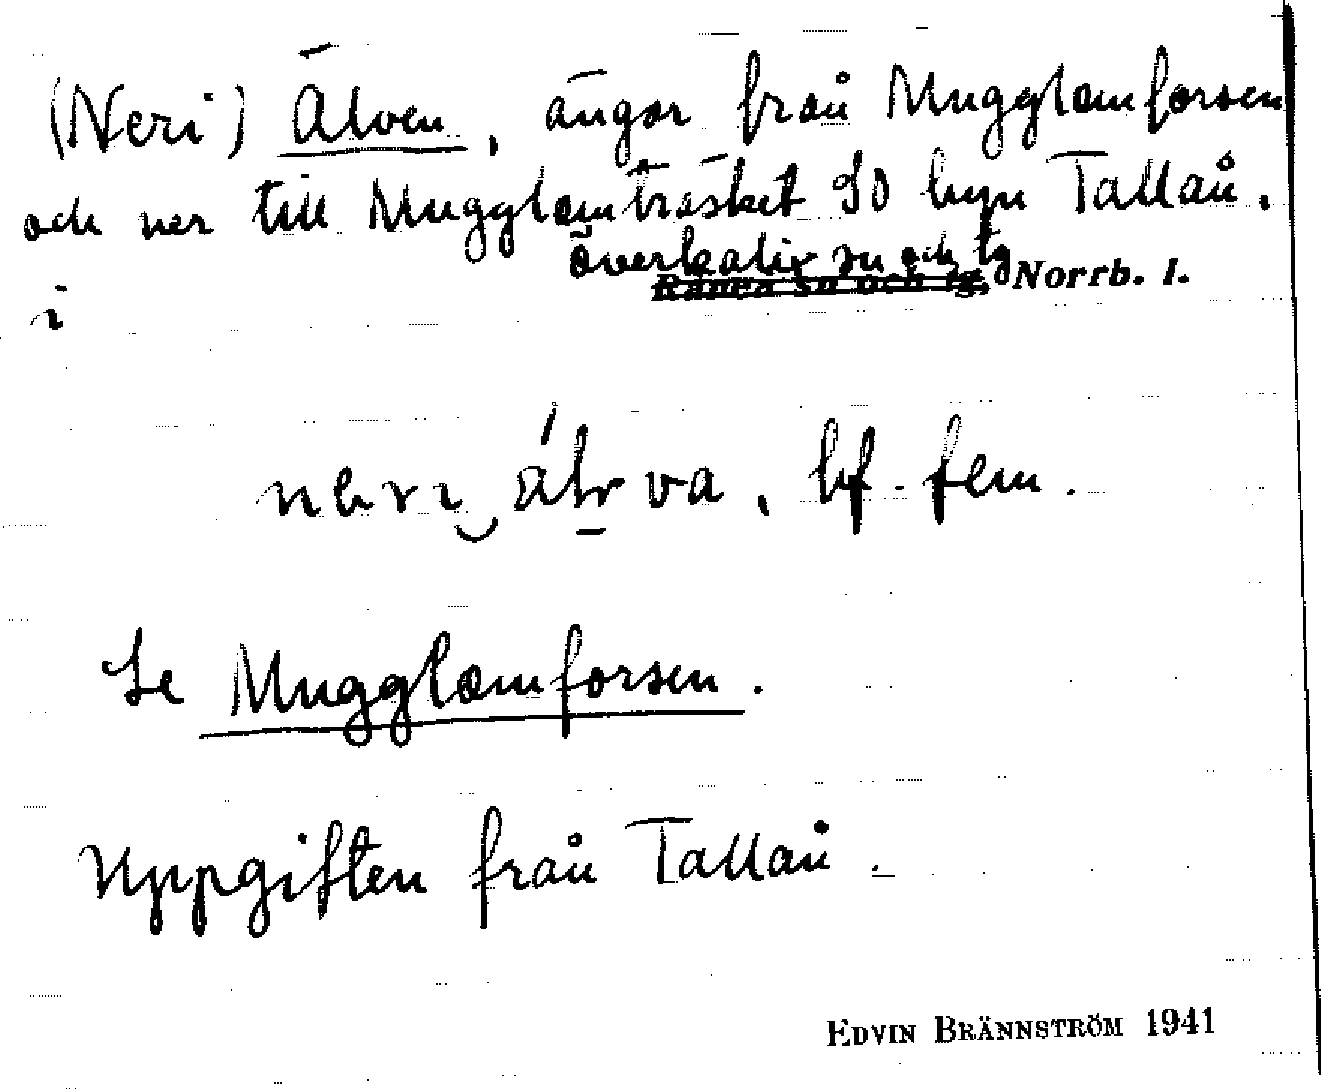 (Neri) Älven, ängar från Mugglamforsen
och ner till Mugglamträsket SO byn Tallån.
Överkalix sn och tg
Råneå sn och tg, Norrb. l.
i
Se Mugglamforsen.
Uppgiften från Tallån.
EDVIN BRÄNNSTRÖM 1941